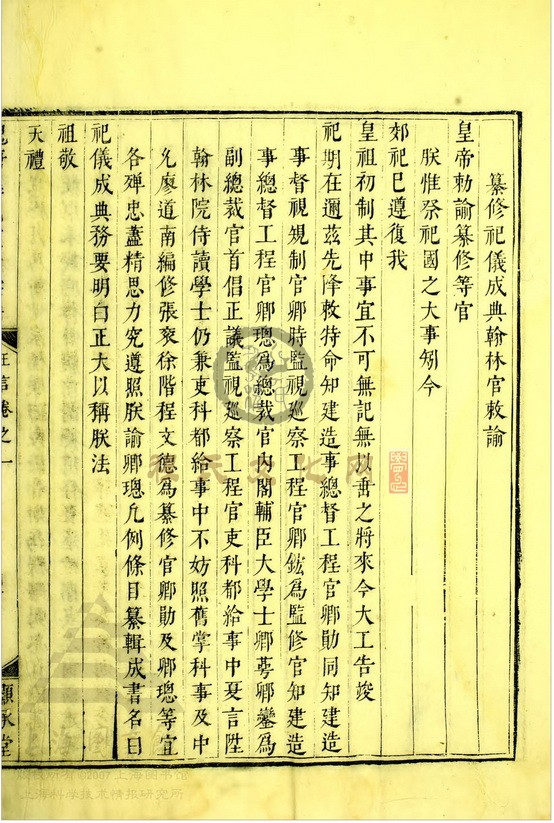 纂修祀儀成典翰林官敕諭
皇帝勅諭纂修等官
朕惟祭祀國之大事矧今
郊祀已遵復我
皇祖初制其中事宜不可無記無以垂之將來今大工告竣
祀期在邇茲先降敕特命知建造事總督工程官卿勛同知建造
事督視規制官卿時監視廵察工程官卿鋐為監修官知建造
事總督工程官卿璁為總裁官內閣輔臣大學士卿蕚卿鑾為
副總裁官首倡正議監視廵察工程官吏科都給事中夏言陞
翰林院侍讀學士仍兼吏科都給事中不妨照舊掌科事及中
允廖道南編修張袞徐階程文德為纂修官卿勛及卿璁等宜
各殫忠盡精思力究遵照朕諭卿璁凡例條目纂輯成書名曰
祀儀成典務要明白正大以稱朕法
祖敬
天禮
卷之一
顯承堂
2007 上海图书馆
上海科学技术情报研究所